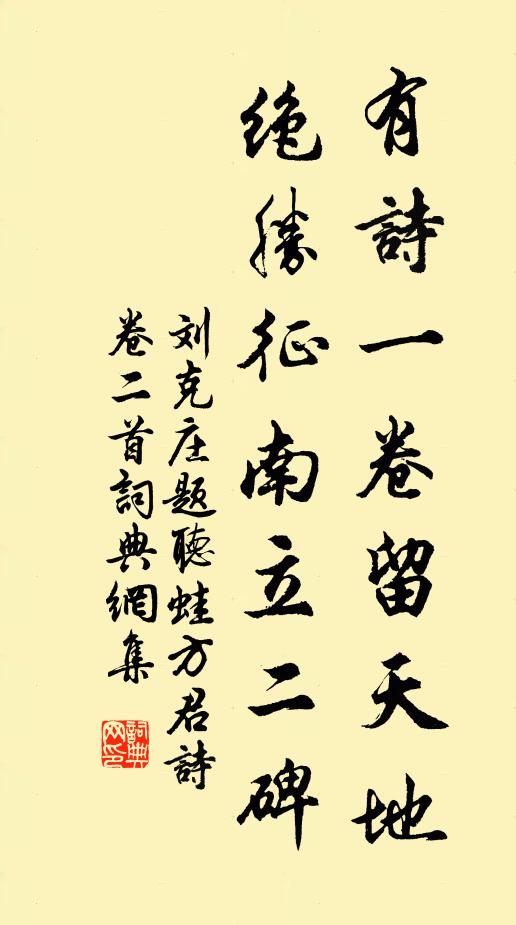 有詩一卷留天地
絶勝征南立二碑
刘克庄題聴蛙方君詩
卷二首詞典網集
詞典
网印